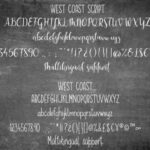 WEST COAST SCRIPT
ABCDEFGHIJKLMNOPQRSTUVWXYZ
abcdefghijklmnopqrstuvwxyz
Multilingual support
WEST COAST...
ABCDEFGHIJKLMNOPQRSTUVWXYZ
ABCDEFGHIJKLMNOPQRSTUVWXYZ
Multilingual support